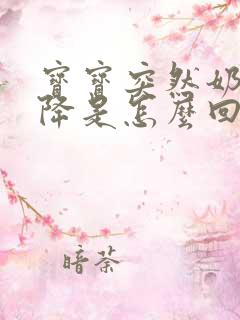 寶寶突然奶
降是怎麼回
暗荼